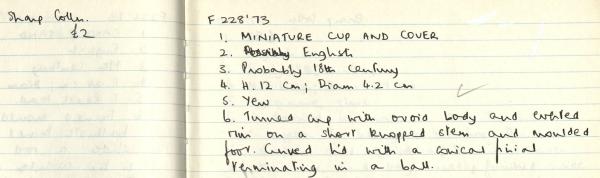 Sharp Colln.
£2
F 228'73
1. MINIATURE CUP AND COVER
2. Possibly English
3. Probably 18th Century
4. H. 12 cm; Diam 4.2 cm
5. Yew
6. Turned cup with ovoid body and everted
rim on a short knopped stem and moulded
foot. Curved lid with a conical finial
terminating in a ball.